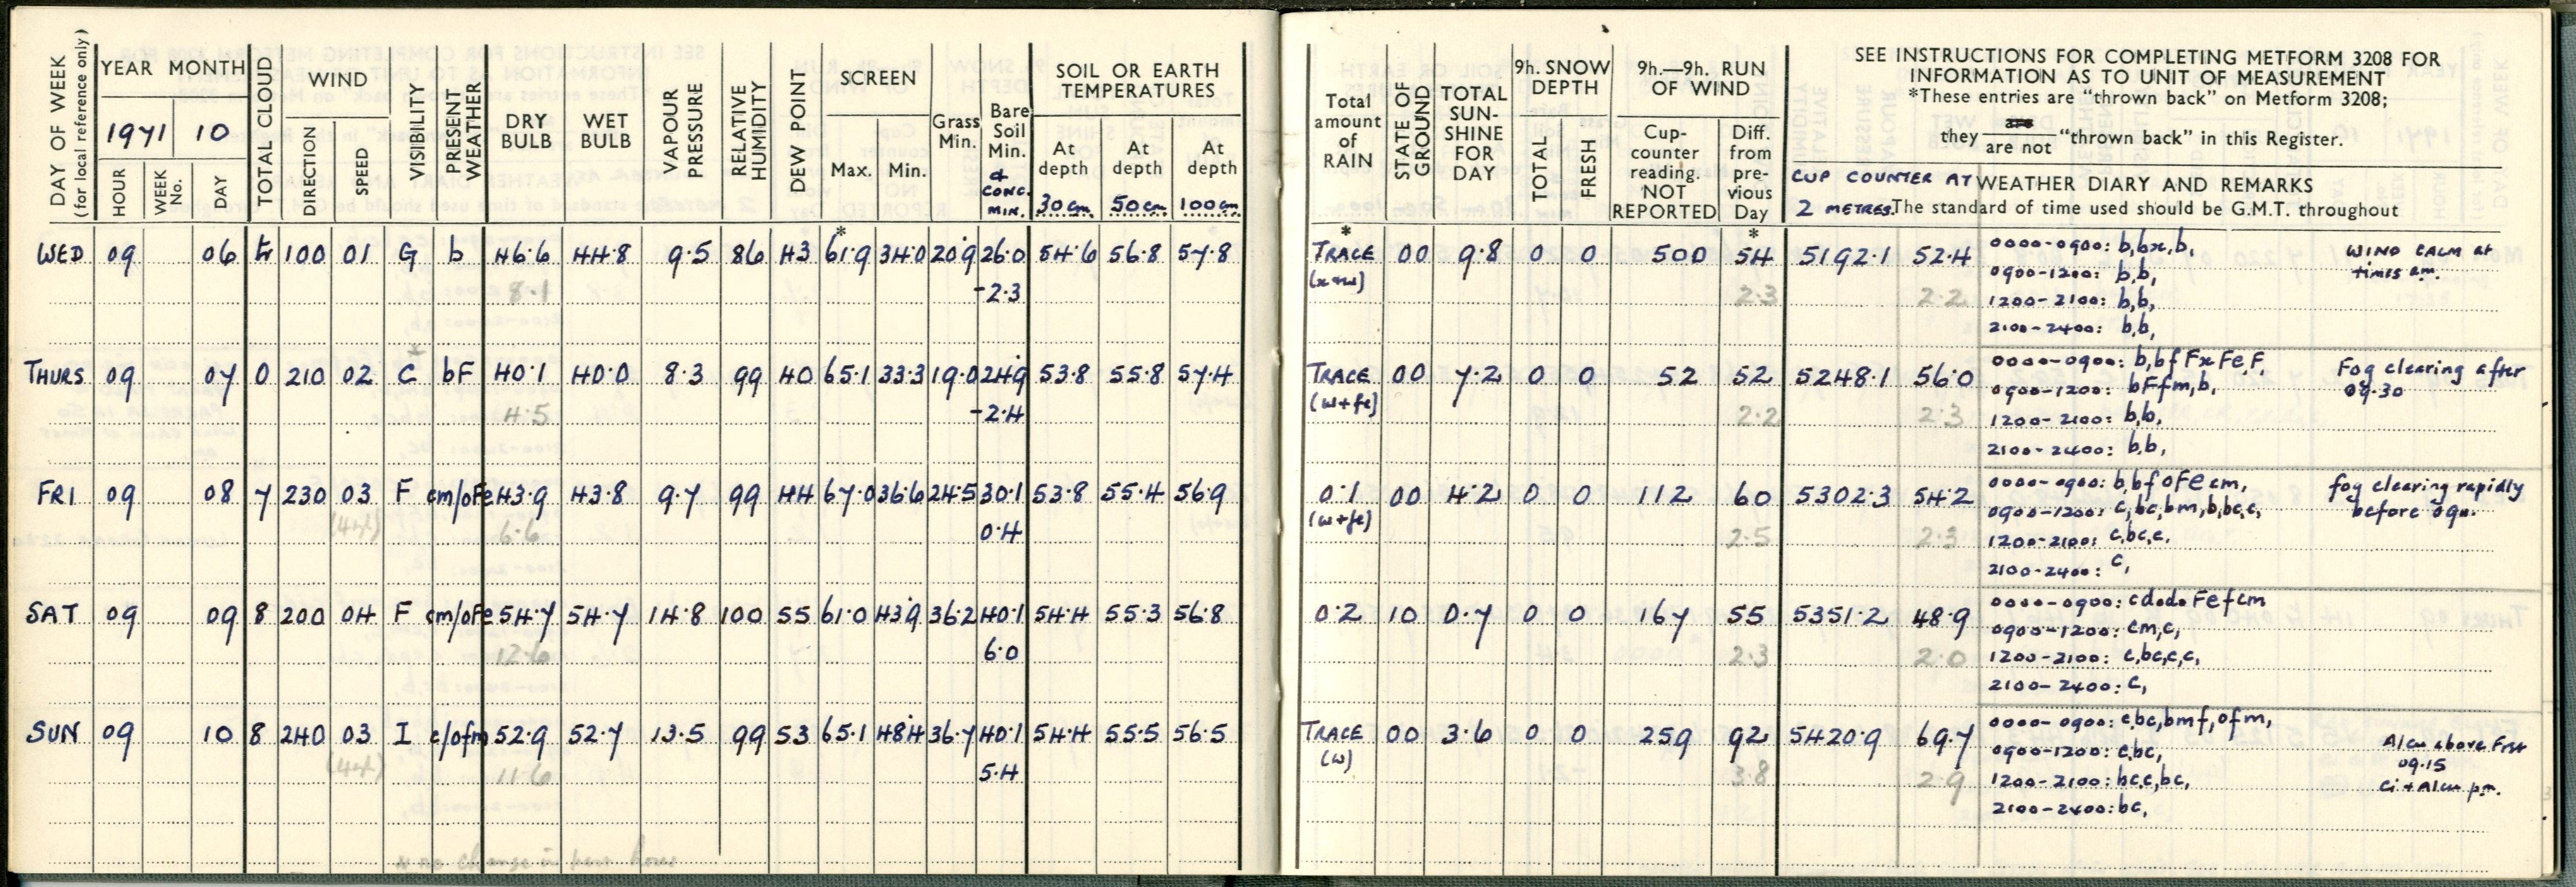 DAY OF WEEK
(for local reference only)
YEAR MONTH
1971 10
HOUR
WEEK No.
DAY
TOTAL CLOUD
WIND
DIRECTION
SPEED
VISIBILITY
PRESENT WEATHER
DRY BULB
WET BULB
VAPOUR PRESSURE
RELATIVE HUMIDITY
DEW POINT
SCREEN
Max. Min.
Grass Min.
Bare Soil Min.
& CONC. MIN.
SOIL OR EARTH TEMPERATURES
At depth 30 cm
At depth 50 cm
At depth 100 cm
Total amount of RAIN
STATE OF GROUND
TOTAL SUN-SHINE FOR DAY
9h. SNOW DEPTH
TOTAL
FRESH
9h.—9h. RUN OF WIND
Cup-counter reading. NOT REPORTED
Diff. from pre-vious Day
SEE INSTRUCTIONS FOR COMPLETING METFORM 3208 FOR
INFORMATION AS TO UNIT OF MEASUREMENT
*These entries are "thrown back" on Metform 3208;
they are / are not "thrown back" in this Register.
CUP COUNTER AT 2 METRES.
WEATHER DIARY AND REMARKS
The standard of time used should be G.M.T. throughout
* * *
WED 09 06 100 01 G b 46.6 44.8 9.5 86 43 61.9 34.0 20.9 26.0 54.6 56.8 57.8 TRACE 00 9.8 0 0 500 54 5192.1 52.4 0000-0900: b,bx,b, WIND CALM at
8.1 -2.3 (x+w) 2.3 2.2 0900-1200: b,b, times am.
1200-2100: b,b,
2100-2400: b,b,
THURS 09 07 0 210 02 C bF 40.1 40.0 8.3 99 40 65.1 33.3 19.0 24.9 53.8 55.8 57.4 TRACE 00 7.2 0 0 52 52 5248.1 56.0 0000-0900: b,bfFxFeF, Fog clearing after
4.5 -2.4 (w+fe) 2.2 2.3 0900-1200: bFfm,b, 09.30
1200-2100: b,b,
2100-2400: b,b,
FRI 09 08 7 230 03 F cm/oFe 43.9 43.8 9.7 99 44 67.0 36.6 24.5 30.1 53.8 55.4 56.9 0.1 00 4.2 0 0 112 60 5302.3 54.2 0000-0900: b,bfoFecm, fog clearing rapidly
6.6 0.4 (w+fe) 2.5 2.3 0900-1200: c,bc,bm,b,bc,c, before 09h.
1200-2100: c,bc,c,
2100-2400: c,
SAT 09 09 8 200 04 F cm/oFe 54.7 54.7 14.8 100 55 61.0 43.9 36.2 40.1 54.4 55.3 56.8 0.2 10 0.7 0 0 167 55 5351.2 48.9 0000-0900: cdodoFefcm
12.6 6.0 2.3 2.0 0900-1200: cm,c,
1200-2100: c,bc,c,c,
2100-2400: c,
SUN 09 10 8 240 03 I c/ofm 52.9 52.7 13.5 99 53 65.1 48.4 36.7 40.1 54.4 55.5 56.5 TRACE 00 3.6 0 0 259 92 5420.9 69.7 0000-0900: c,bc,bmf,ofm,
11.6 5.4 (w) 3.8 2.9 0900-1200: c,bc, 09.15
1200-2100: bc,c,bc, Ci + Alcu pm.
2100-2400: bc,
* no change in hours